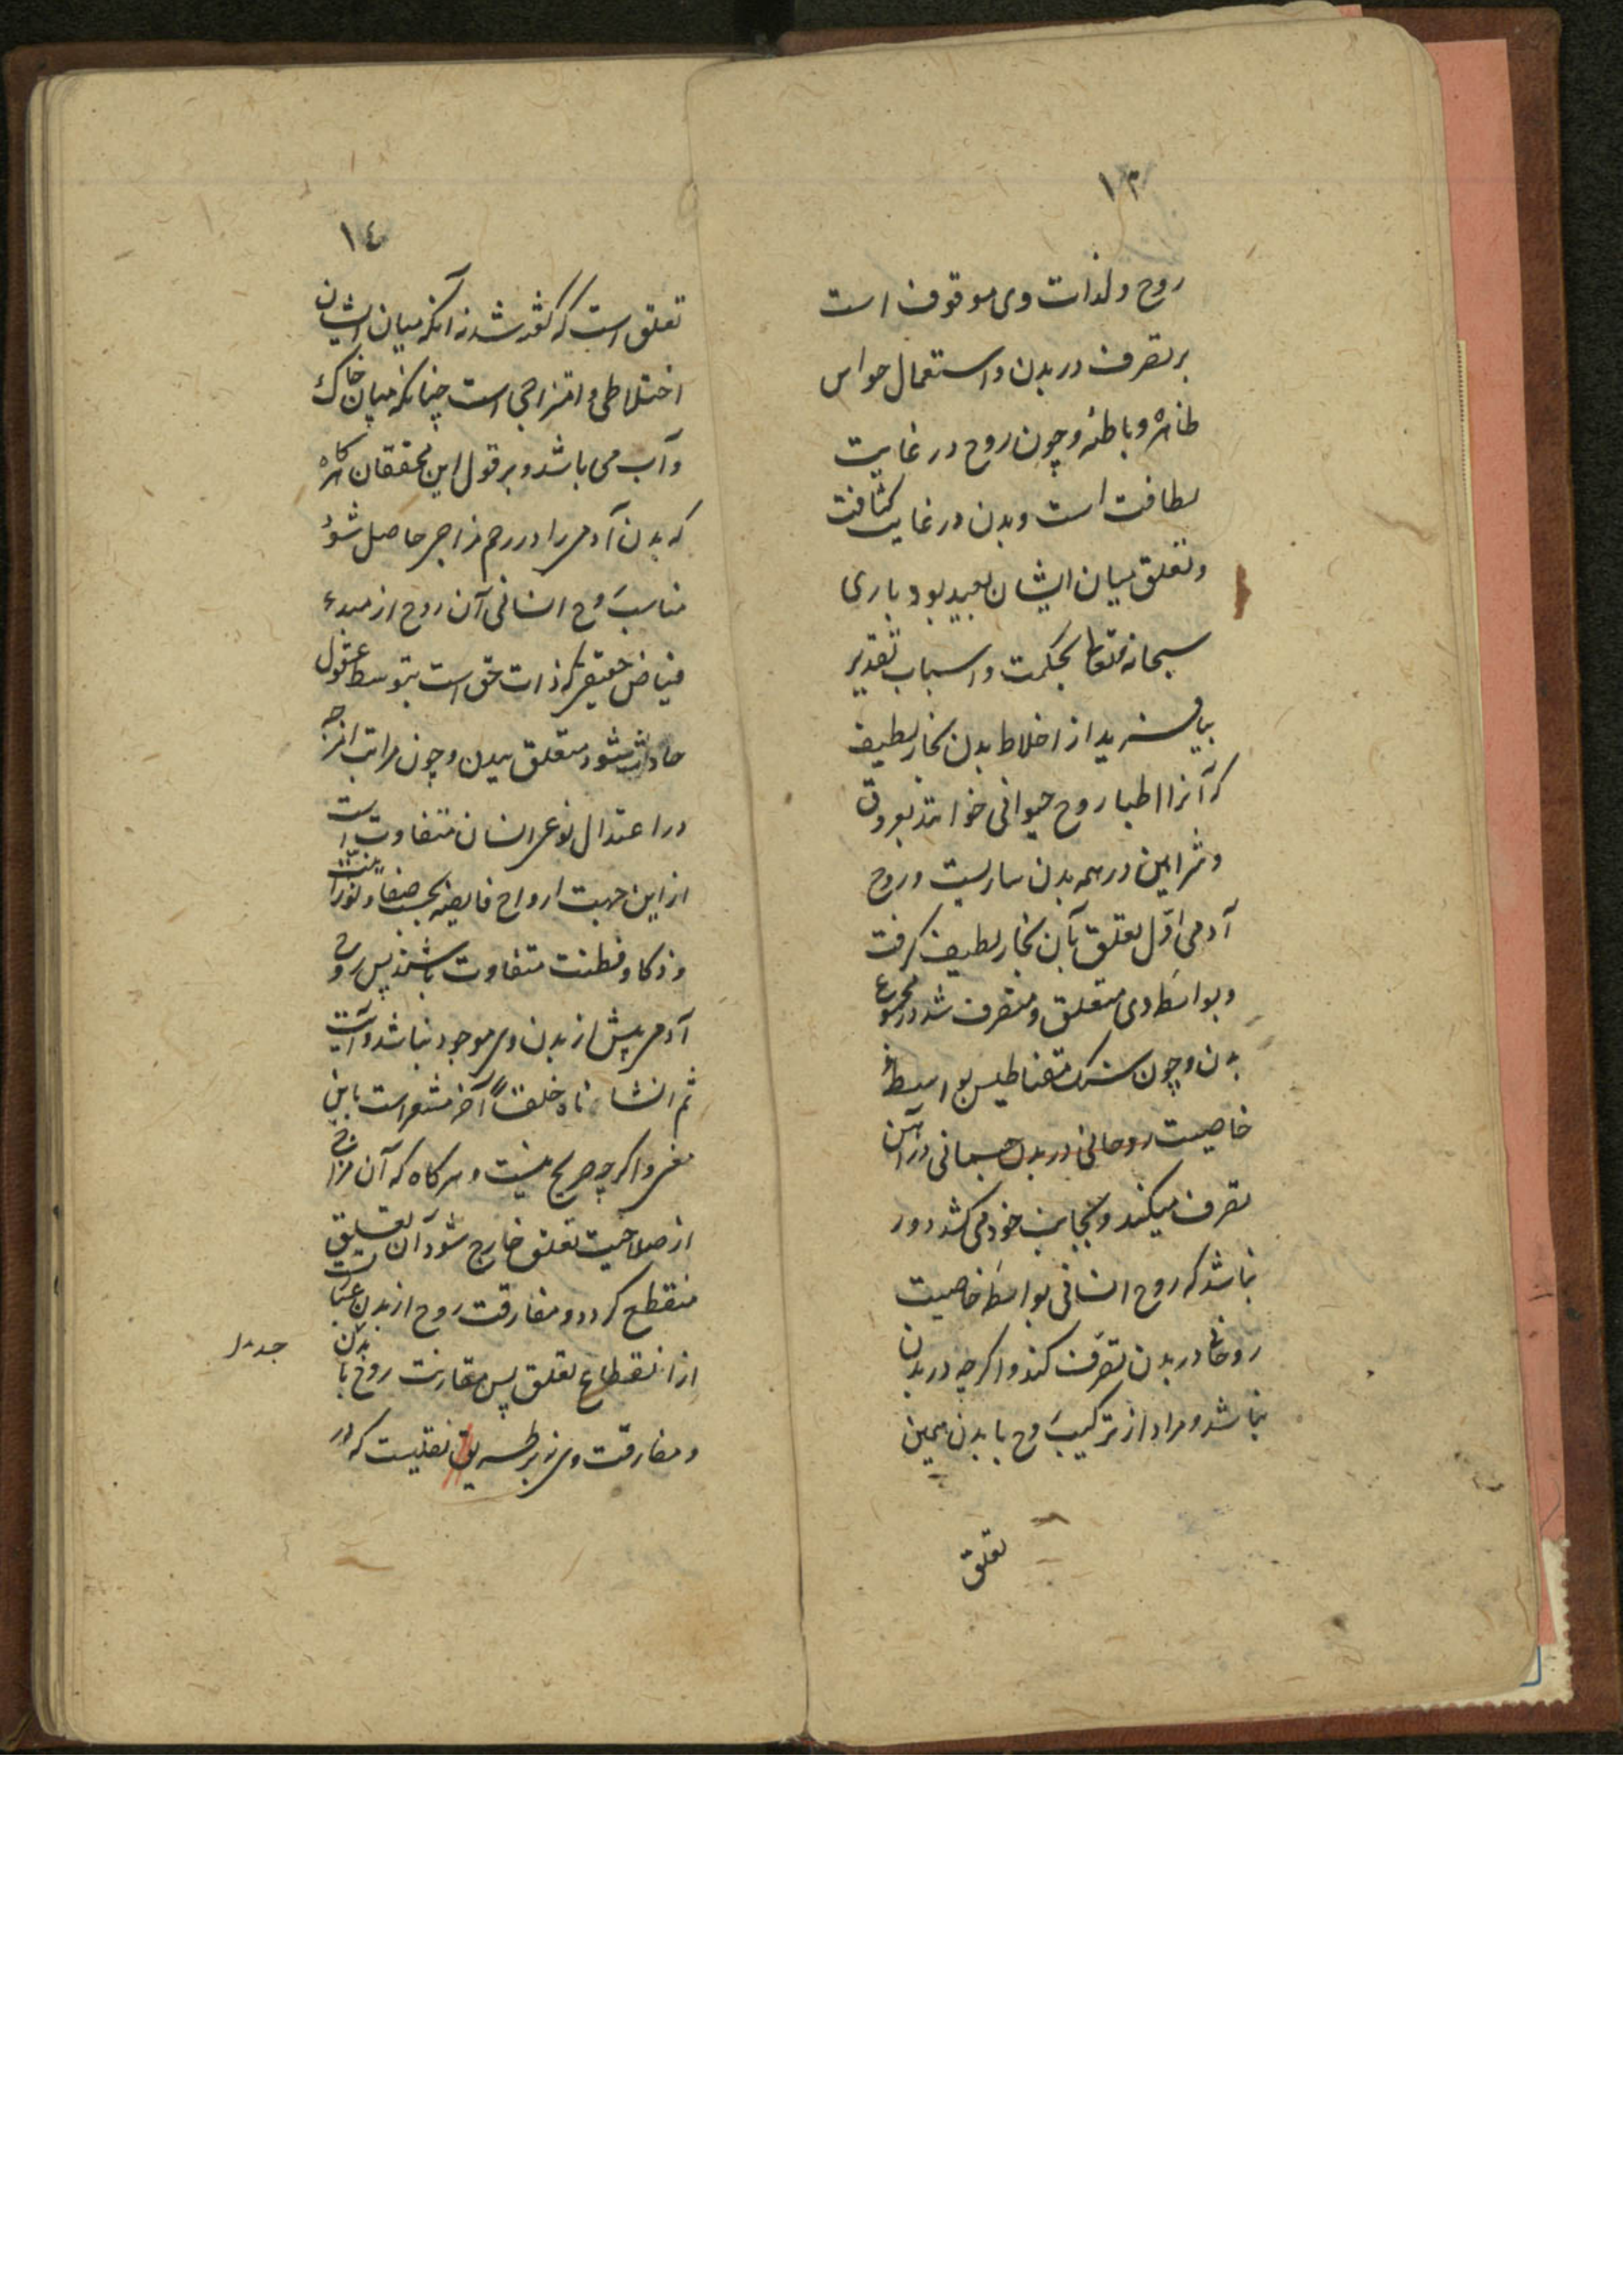 ١٣
روح ولذات وی موقوف است
بر تصرف در بدن و استعمال حواس
ظاهره وباطنه وچون روح در غایت
لطافت است وبدن در غایت کثافت
وتعلق میان ایشان بعید بود باری
سبحانه وتعالی بحکمت واسباب تقدیر
بیافرید از اخلاط بدن بخار لطیف
که آنرا اطبا روح حیوانی خوانند بعروق
وشرایین در همه بدن ساریست وروح
آدمی اوّل تعلق بآن بخار لطیف گرفت
وبواسطه وی متعلق ومتصرف شد در مجموع
بدن وچون سنک مقناطیس بواسطهٔ
خاصیت روحانی در بدن جسمانی در آهن
تصرف میکند وبجانب خود می کشد دور
نباشد که روح انسانی بواسطه خاصیت
روحانی در بدن تصرّف کند واکرچه در بدن
نباشد ومراد از ترکیب روح با بدن همین
تعلق
١٤
تعلق است که گفته شد نه آنکه میان ایشان
اختلاطی وامتزاجی است چنانکه میان خاک
وآب می باشد وبر قول این محققان هرکاه
که بدن آدمی را در رحم مزاجی حاصل شود
مناسب روح انسانی آن روح از مبدء
فیاض حقیقی که ذات حق است بتوسط عقول
حادث شود متعلق ببدن وچون مراتب امزجه
در اعتدال نوعی انسان متفاوت است
از این جهت ارواح فایضه بحسب صفا ونورانیت
وذکا وفطنت متفاوت باشند پس روح
آدمی پیش از بدن وی موجود نباشد وآیت
ثم انشاناه خلقاً آخر مشعر است باین
معنی واکرچه صریح نیست وهرکاه که آن مزاج
از صلاحیت تعلق خارج شود آن تعلق
منقطع کردد ومفارقت روح از بدن عبارت
از انقطاع تعلق پس مقارنت روح با بدن
ومفارقت وی نه بر طریق نقلیست که در